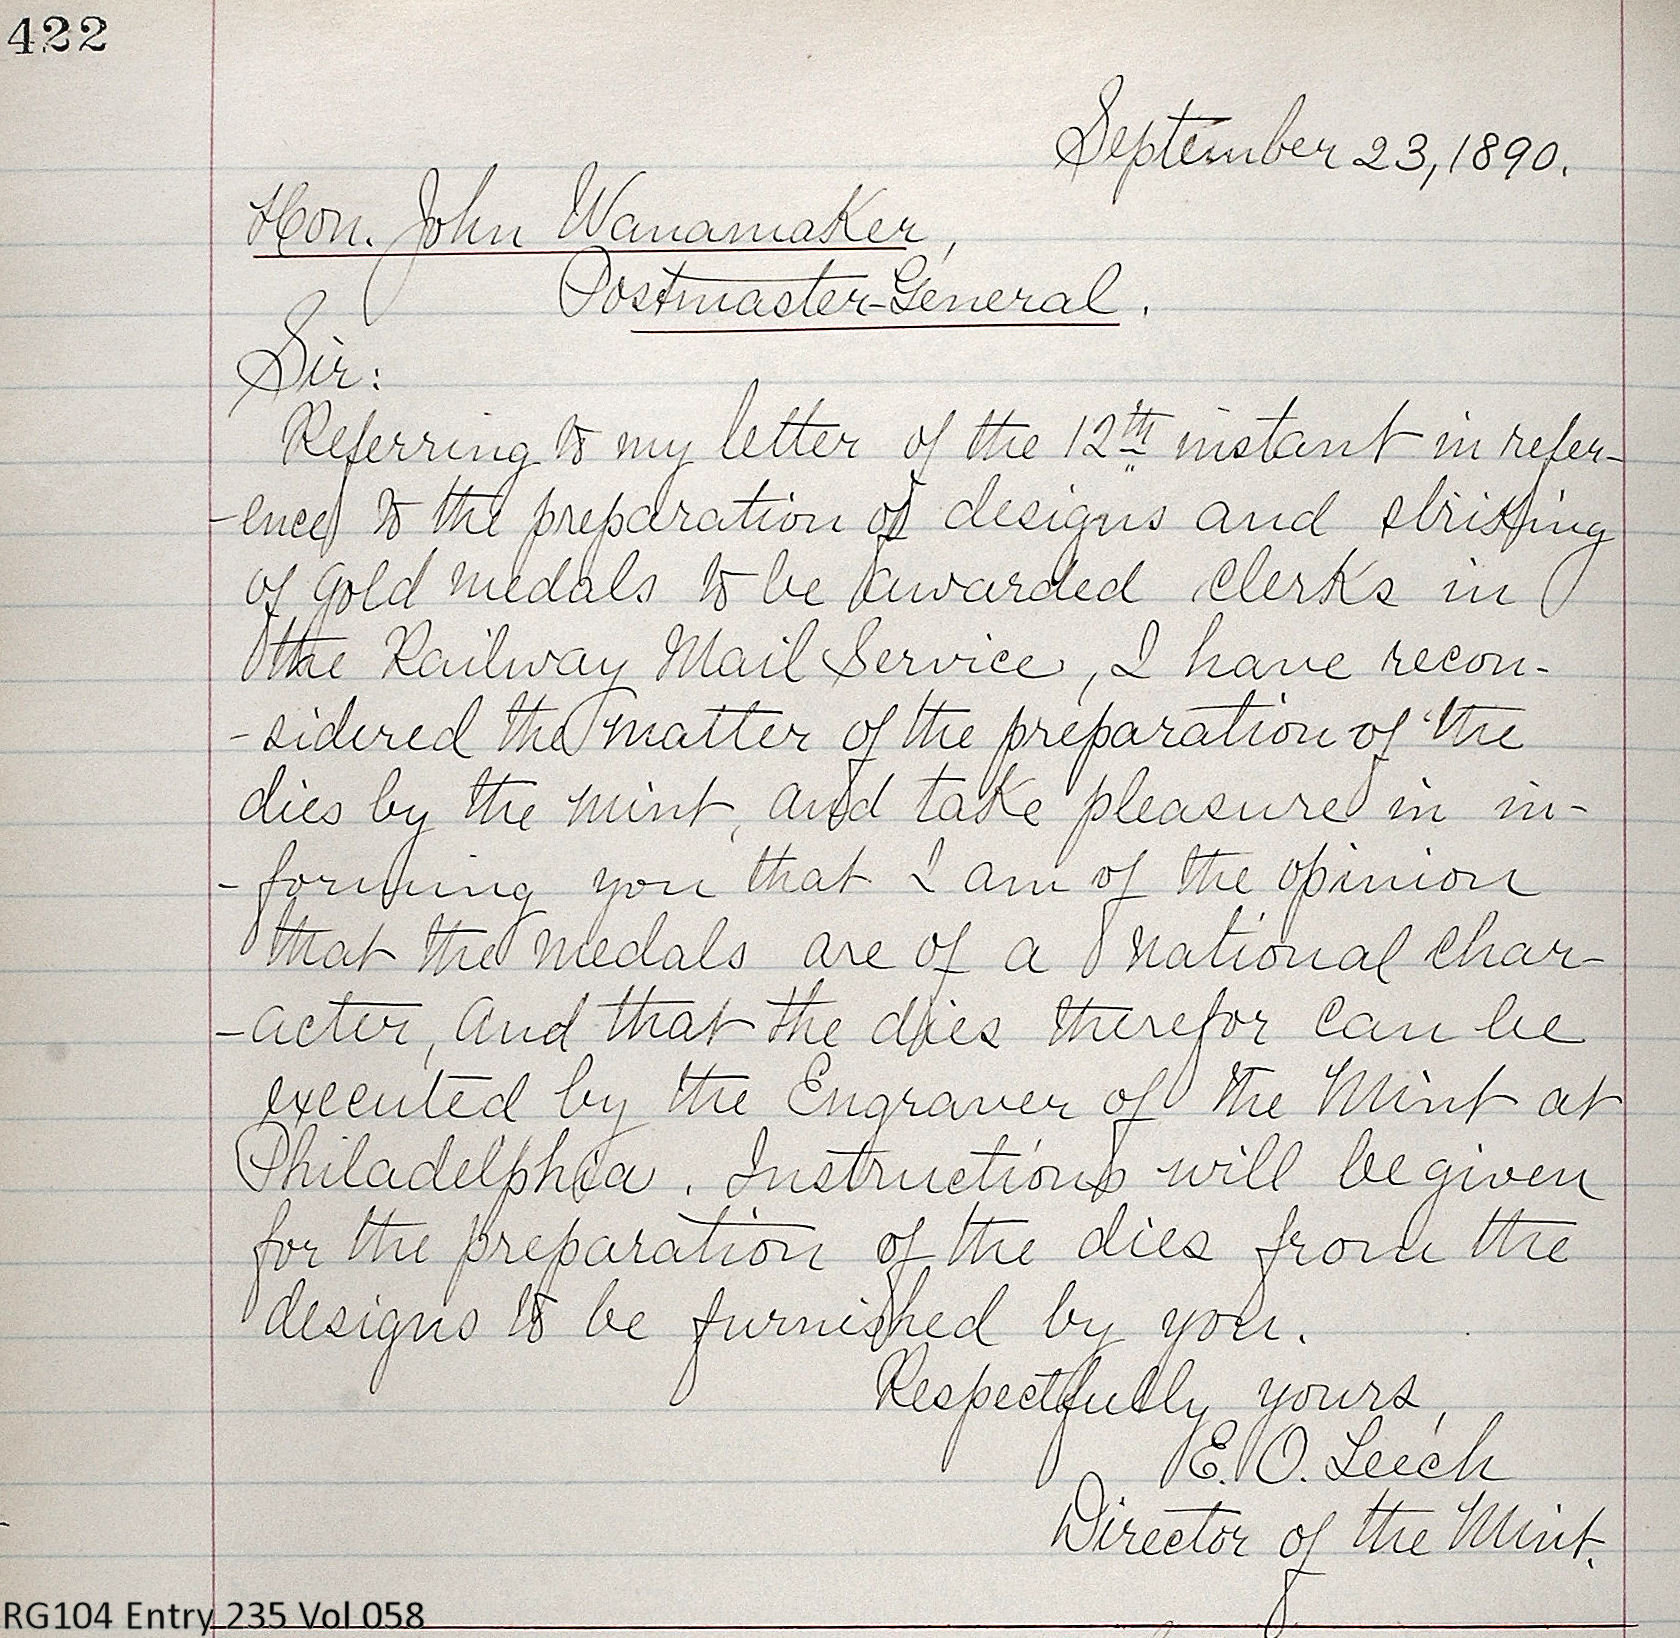 422
September 23, 1890.
Hon. John Wanamaker,
Postmaster-General.
Sir:
Referring to my letter of the 12th instant in refer-
-ence to the preparation of designs and striking
of gold medals to be awarded clerks in
the Railway Mail Service, I have recon-
-sidered the matter of the preparation of the
dies by the mint, and take pleasure in in-
-forming you that I am of the opinion
that the medals are of a national char-
-acter, and that the dies therefor can be
executed by the Engraver of the Mint at
Philadelphia. Instructions will be given
for the preparation of the dies from the
designs to be furnished by you.
Respectfully yours,
E. O. Leech
Director of the Mint.
RG104 Entry 235 Vol 058